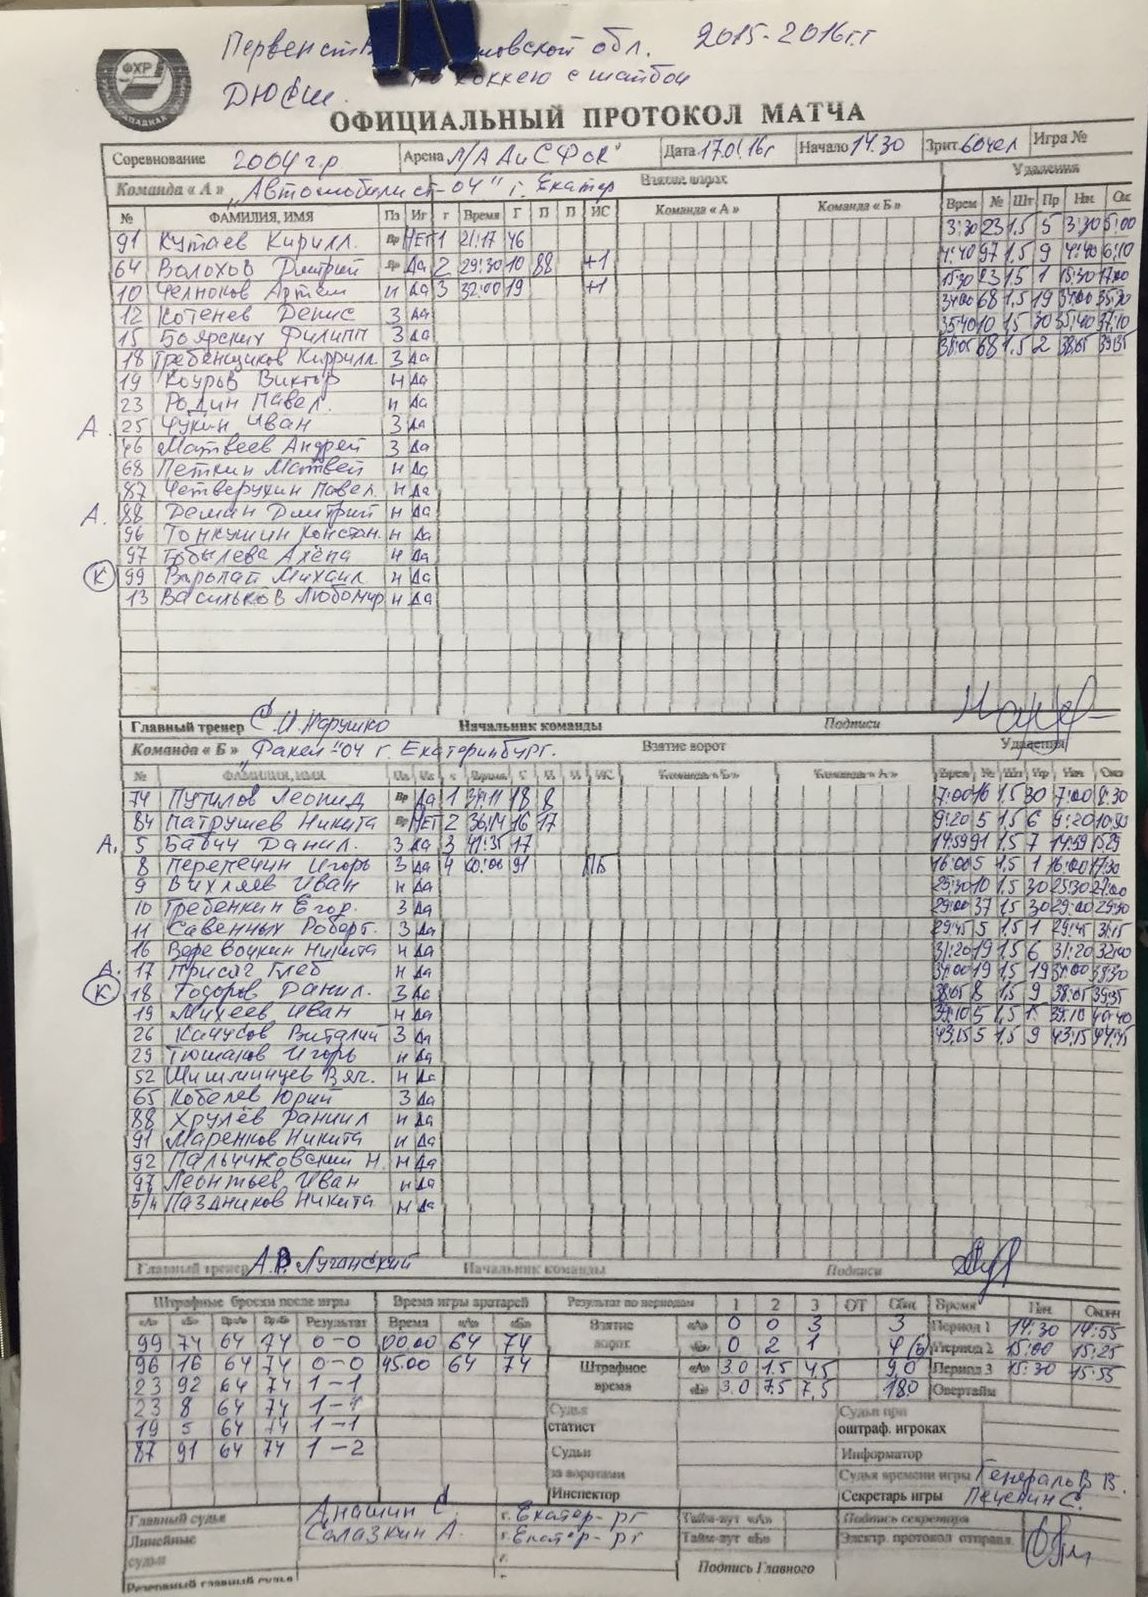 2015-2016гг
по хоккею с шайбой
ДЮСШ.
ФХР
ОФИЦИАЛЬНЫЙ ПРОТОКОЛ МАТЧА
Соревнование 2004 г.р Арена Дата Начало 14.30 Зрит. 60чел Игра №
Команда « А » „Автомобилист-04" г. Екатер Взятие ворот Удаления
№ ФАМИЛИЯ, ИМЯ Пз Иг г Время Г П П ИС Команда « А » Команда « Б » Врем № Шт Пр Нач Ок
91 Кутаев Кирилл. Вр НЕТ 1 21:17 46 3:30 23 1,5 5 3:30 5:00
64 Волохов Дмитрий Вр Да 2 29:30 10 88 +1 4:40 97 1,5 9 4:40 6:10
10 Челноков Артём н Да 3 32:00 19 +1 15:30 23 1,5 1 15:30 17:00
12 Котенев Денис З Да 34:00 68 1,5 19 34:00 35:30
15 Боярских Филипп З Да 35:40 10 1,5 30 35:40 37:10
18 Гребенщиков Кирилл. З Да 38:05 68 1.5 2 38:05 39:35
19 Коуров Виктор н Да
23 Родин Павел. н Да
А. 25 Чукин Иван З Да
46 Матвеев Андрей З Да
68 Петкин Матвей н Да
87 Четверухин Павел. н Да
А. 88 Деман Дмитрий н Да
96 Тонкушин Констан. н Да
97 Гобылева Алёна н Да
К 99 Варолай Михаил н Да
13 Васильков Любомир н Да
Главный тренер С.И. Марушко Начальник команды Подписи
Команда « Б » „Факел"-04 г. Екатеринбург. Взятие ворот Удаления
№ ФАМИЛИЯ, ИМЯ Время ИС Команда « Б » Команда « А »
74 Путилов Леонид Вр Да 1 31:11 18 8 7:00 16 1,5 30 7:00 8:30
84 Патрушев Никита Вр НЕТ 2 36:14 16 17 9:20 5 1,5 6 9:20 10:50
А. 5 Бабич Данил. З Да 3 41:35 17 14:59 91 1,5 7 14:59
8 Перепечин Игорь З Да 4 60:00 91 ПБ 16:00 5 1,5 1 16:00 17:30
9 Вихляев Иван н Да 25:30 10 1,5 30 25:30 27:00
10 Гребенкин Егор. З Да 29:00 37 1,5 30 29:00
11 Савенных Роберт. З Да 29:45 5 1,5 1 29:45 31:15
16 Веревочкин Никита н Да 31:20 19 1,5 6 31:20
А. 17 Присяг Глеб н Да 34:00 19 1,5 19 34:00
К 18 Тодоров Данил. З Да 38:05 8 1,5 9 38:05 39:35
19 Михеев Иван н Да 39:10 5 1,5 39:10 40:40
26 Качусов Виталий З Да 43:15 5 1,5 9 43:15 44:45
29 Тюшаков Игорь н Да
52 Шишминцев Вяч. н Да
65 Кобелев Юрий З Да
88 Хрулёв Даниил н Да
91 Маренков Никита н Да
92 Н. н Да
97 Леонтьев Иван н Да
Паздников Никита н Да
Главный тренер А.В. Луганский Начальник команды Подписи
Штрафные броски после игры Время игры вратарей Результат по периодам 1 2 3 ОТ Общ Время Нач Оконч
«А» «Б» Вр«А» Вр«Б» Результат Время «А» «Б» Взятие ворот «А» 0 0 3 3 Период 1 14:30 14:55
99 74 64 74 0-0 00.00 64 74 «Б» 0 2 1 4(Б) Период 2 15:00 15:25
96 16 64 74 0-0 45.00 64 74 Штрафное время «А» 3.0 1.5 4,5 9,0 Период 3 15:30 15:55
23 92 64 74 1-1 «Б» 3.0 7,5 7,5 18.0 Овертайм
23 8 64 74 1-1 Судья статист Судьи при оштраф. игроках
19 5 64 74 1-1
87 91 64 74 1-2 Судьи за воротами Информатор
Судья времени игры Генераль В.В.
Инспектор Секретарь игры Печенин С.
Главный судья Анашин С. г. Екатер-рг Тайм-аут «А» Подпись секретаря
Линейные судьи Салазкин А. г. Екатер-рг Тайм-аут «Б» Электр. протокол отправл.
г.
Резервный главный судья Подпись Главного